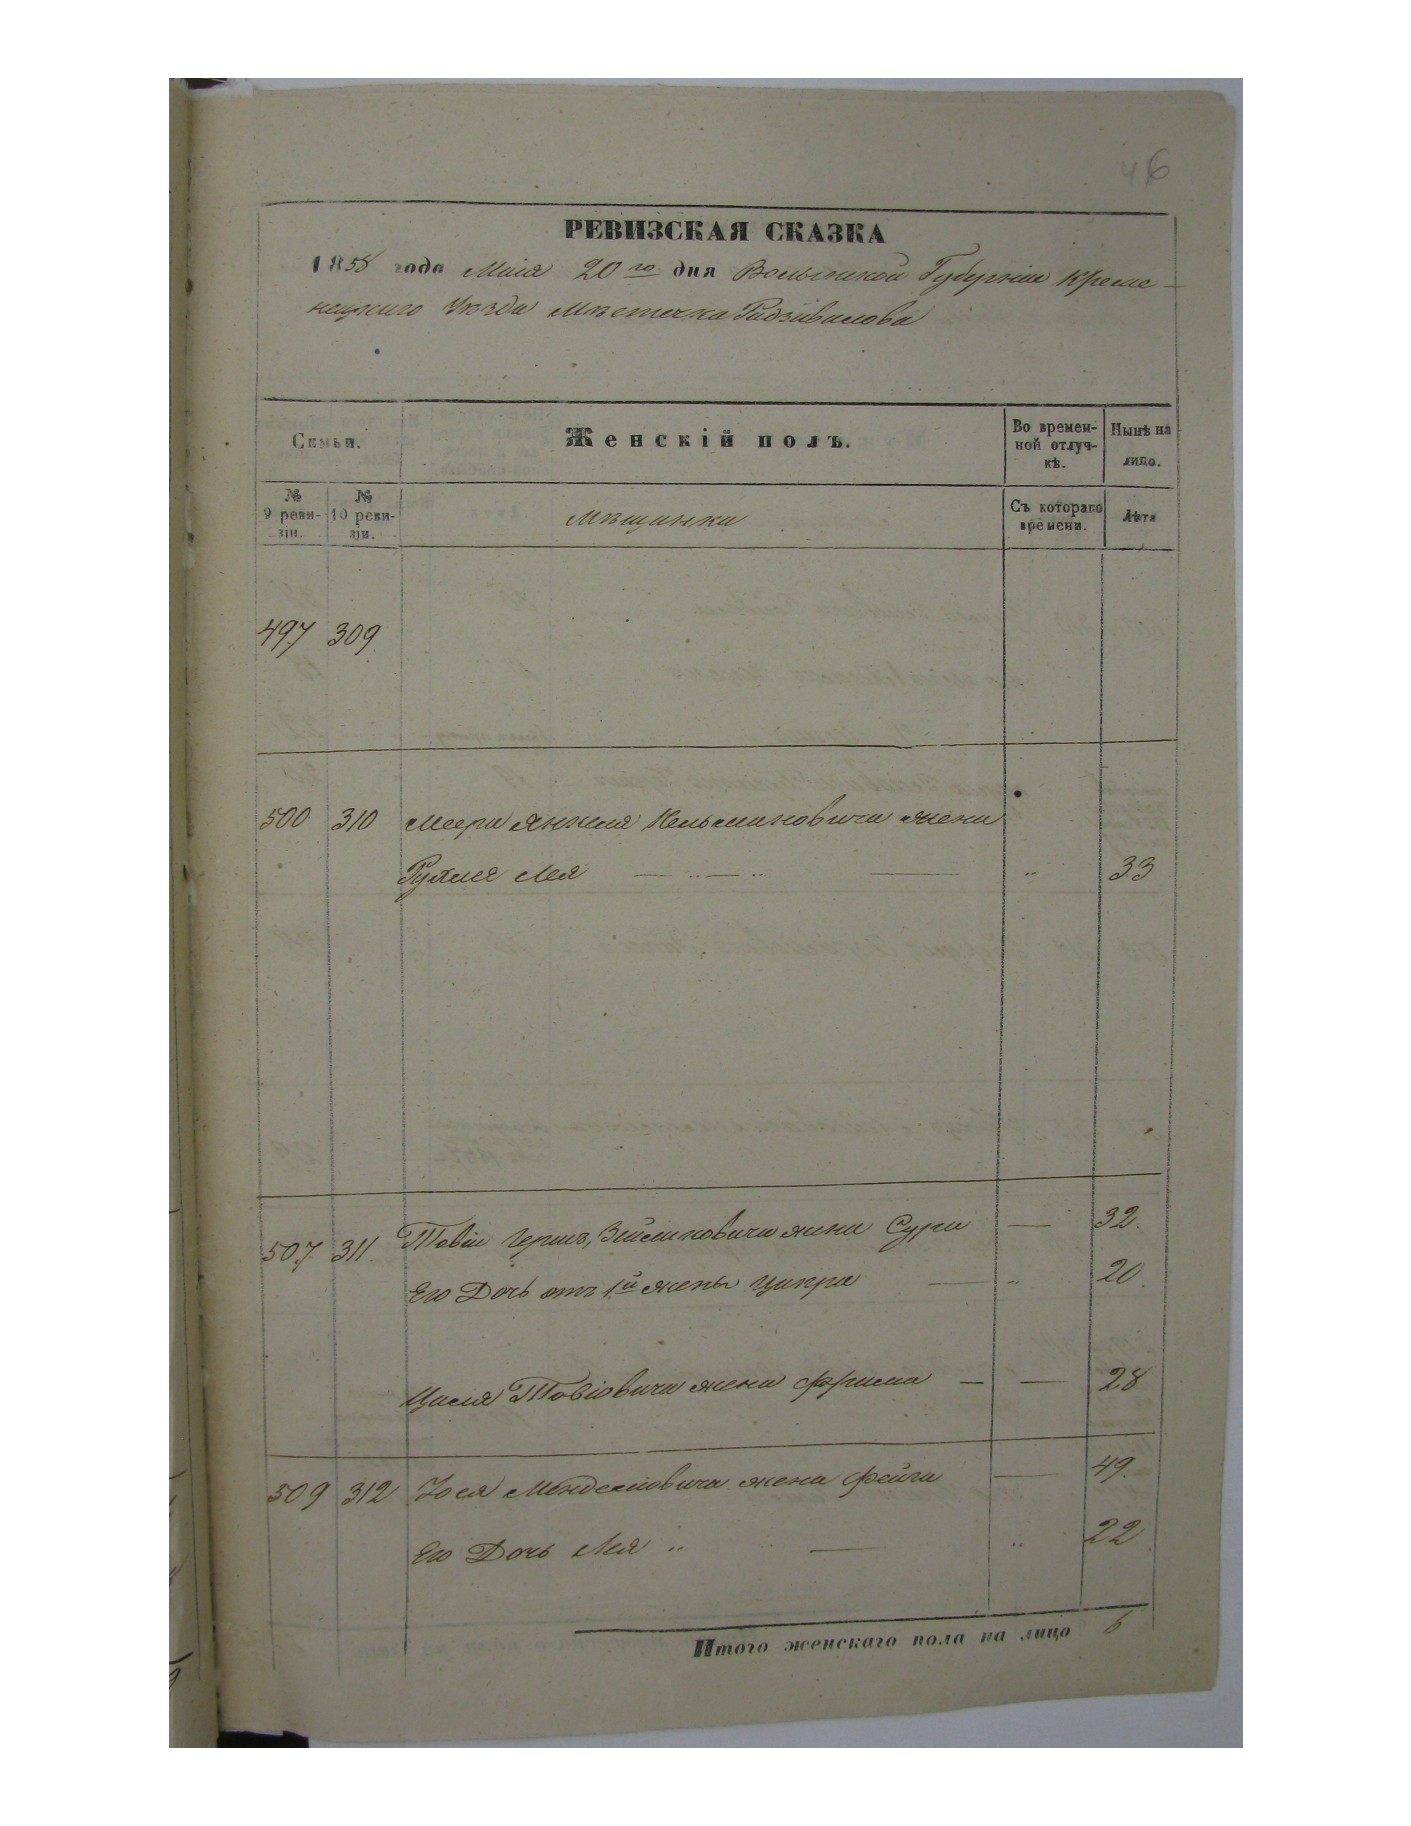 46
РЕВИЗСКАЯ СКАЗКА
1858 года Маія 20го дня Волынской Губерніи Креме-
нецкаго Уезда Мѣстечка Радзивилова
Семьи.
Женскій полъ.
Во времен-
ной отлуч-
кѣ.
Нынѣ на
лицо.
№
9 реви-
зіи.
№
10 реви-
зіи.
Мѣщанки
Съ котораго
времени.
Лѣта
497 309
500 310 Меера Янкеля жена
Лея 33
507. 311 Товіи Герша, жена Сура 32.
Его Дочь отъ 1й жены Ципра 20.
Товіовича жена Фрима 28
509 312 Іося Менделіовича жена Фейга 49.
Его Дочь Лея 22.
Итого женскаго пола на лицо 6